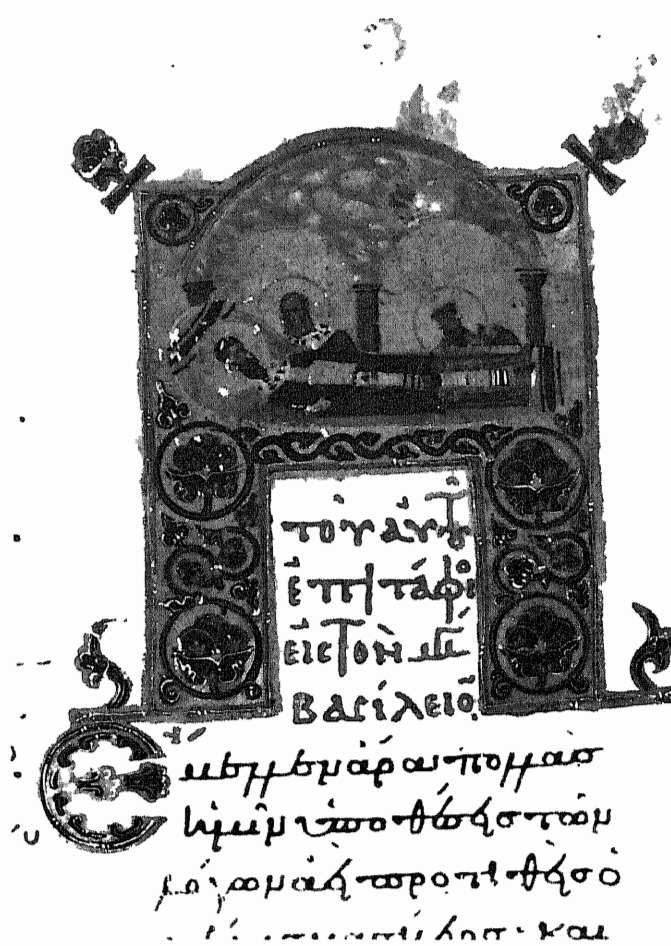 τοῦ αὐτοῦ
ἐπιτάφι
εἰς τὸν μέ
βασίλειο
Ἔμελλεν ἄρα πολλὰς
ἡμῖν ὑποθέσεις τῶν
λόγων ἀεὶ προτιθεὶς ὁ
και